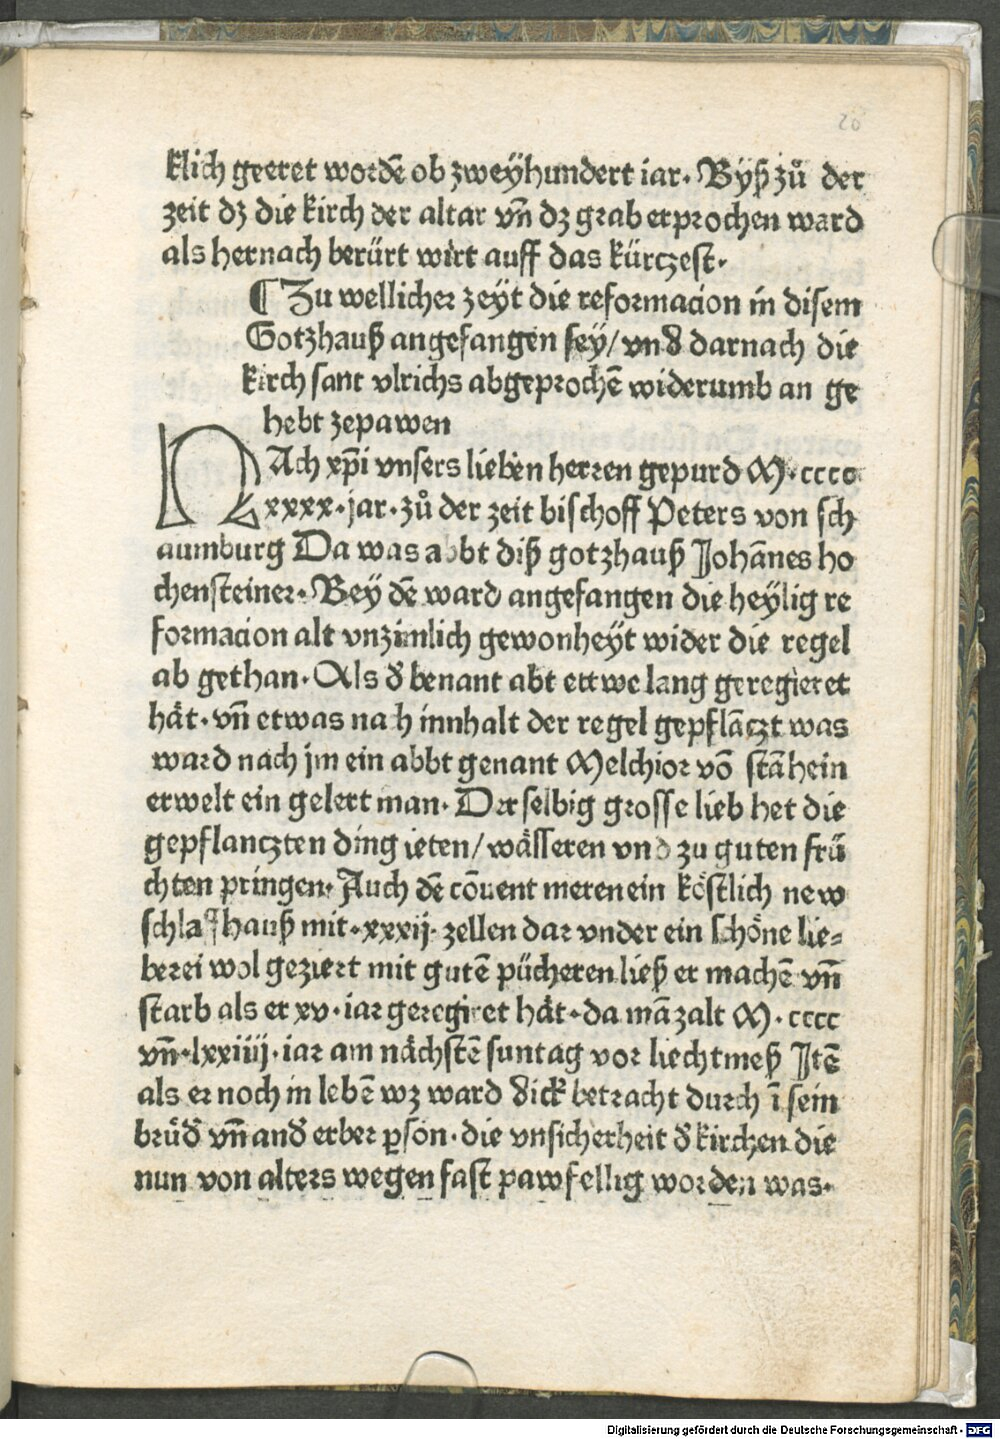 28
klich geeret wordē ob zweyhundert iar. Byß zů der
zeit dz die kirch der altar vn̄ dz grab erprochen ward
als hernach berürt wirt auff das kürczest.
¶ Zu wellicher zeyt die reformacion in disem
Gotzhauß angefangen sey/ vnd darnach die
kirch sant vlrichs abgeprochē widerumb an ge
hebt zepawen
NAch xp̄i vnsers lieben herren gepurd M.cccc
xxxx.jar.zů der zeit bischoff Peters von sch
aumburg Da was abbt diß gotzhauß Johānes ho
chensteiner. Bey dē ward angefangen die heylig re
formacion alt vnzimlich gewonheyt wider die regel
ab gethan. Als d benant abt ettwe lang geregieret
hät. vn̄ etwas nach innhalt der regel gepflāczt was
ward nach jm ein abbt genant Melchior vō stāhein
erwelt ein gelert man. Der selbig grosse lieb het die
gepflanczten ding ieten/ wässeren vnd zu guten frü
chten pringen. Auch dē cōuent meren ein köstlich new
schlaffhauß mit.xxxij. zellen dar vnder ein schöne lie=
berei wol geziert mit gutē pücheren ließ er machē vn̄
starb als er xv.iar geregiret hät.da mā zalt M.cccc
vn̄.lxxiiij.iar am nächstē suntag vor liechtmeß Jtē
als er noch in lebē wz ward dick betracht durch ī sein
brüd̄ vn̄ and̄ erber ꝑson.die vnsicherheit d̄ kirchen die
nun von alters wegen fast pawfellig worden was.
Digitalisierung gefördert durch die Deutsche Forschungsgemeinschaft - DFG